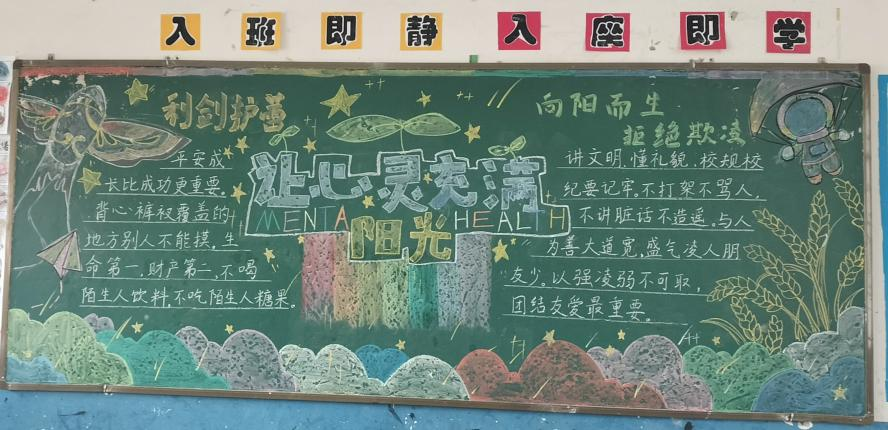 入班即静 入座即学
利剑护蕾
平安成
长比成功更重要。
背心裤衩覆盖的
地方别人不能摸,生
命第一,财产第二,不喝
陌生人饮料,不吃陌生人糖果。
让心灵充满
MENTAL HEALTH
阳光
向阳而生
拒绝欺凌
讲文明,懂礼貌,校规校
纪要记牢。不打架不骂人,
不讲脏话不造遥。与人
为善大道宽,盛气凌人朋
友少。以强凌弱不可取,
团结友爱最重要。